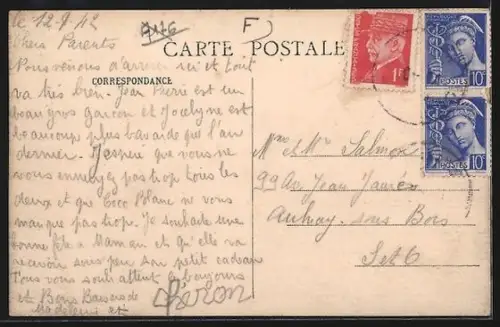 le 12-9-42
9176
F
CARTE POSTALE
CORRESPONDANCE
Chers Parents
Nous venons d'arriver ici et tout
va très bien. Jean Pierre est un
beau gros garçon et Jocelyne est
beaucoup plus bavarde que l'an
dernier. J'espère que vous ne
vous ennuyez pas trop tous les
deux et que Coco Blanc ne vous
manque pas trop. Je souhaite une
bonne fête à Maman et qu'elle va
recevoir sous peu son petit cadeau
Tous vous souhaitent le bonjour
et Bons Baisers de
Madeleine et
1F
POSTES 10c
POSTES 10c
Mme & Mr Salmon
99 Av. Jean Jaurès
Aulnay-sous-Bois
S et O